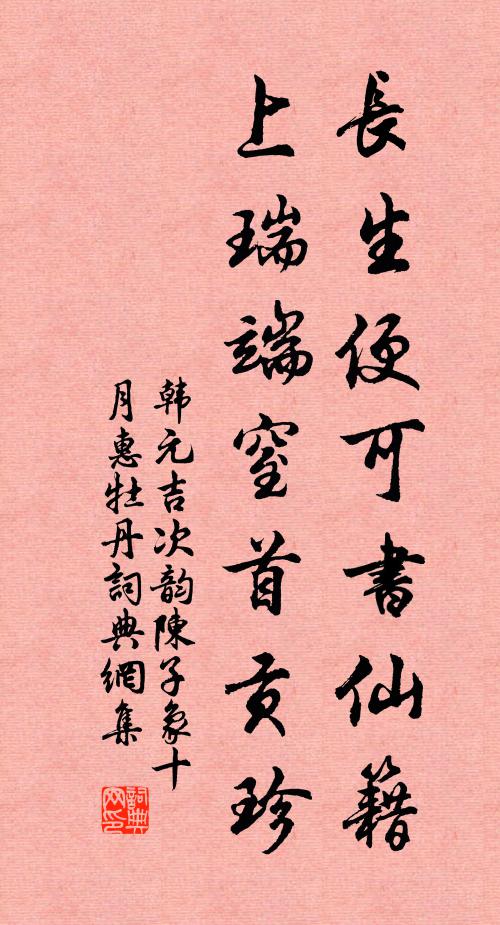 長生便可書仙籍
上瑞端窒首貢珍
韩元吉次韵陳子象十
月惠牡丹詞典網集
詞典
网印